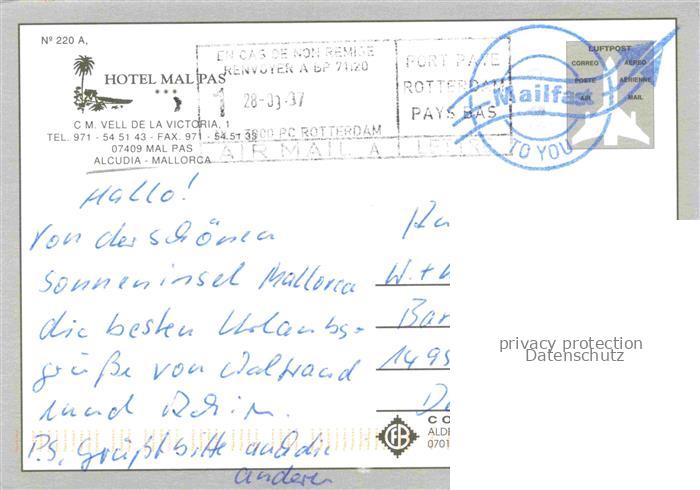 Nº 220 A,
HOTEL MAL PAS
C M. VELL DE LA VICTORIA, 1
TEL. 971 - 54 51 43 - FAX. 971 - 54 51 38
07409 MAL PAS
ALCUDIA - MALLORCA
EN CAS DE NON REMISE
RENVOYER A BP 71120
1 28-03-97
3000 PC ROTTERDAM
AIR MAIL A
PORT PAYE
ROTTERDAM
PAYS BAS
Mailfast
TO YOU
LUFTPOST
CORREO AEREO
POSTE AERIENNE
AIR MAIL
Hallo!
Von der schönen
Sonneninsel Mallorca
die besten Urlaubs-
grüße von Waltraud
und Achim.
P.S. Grüßt bitte auch die
anderen
W. +
Bar
1495
privacy protection
Datenschutz
CO
ALDE
0701